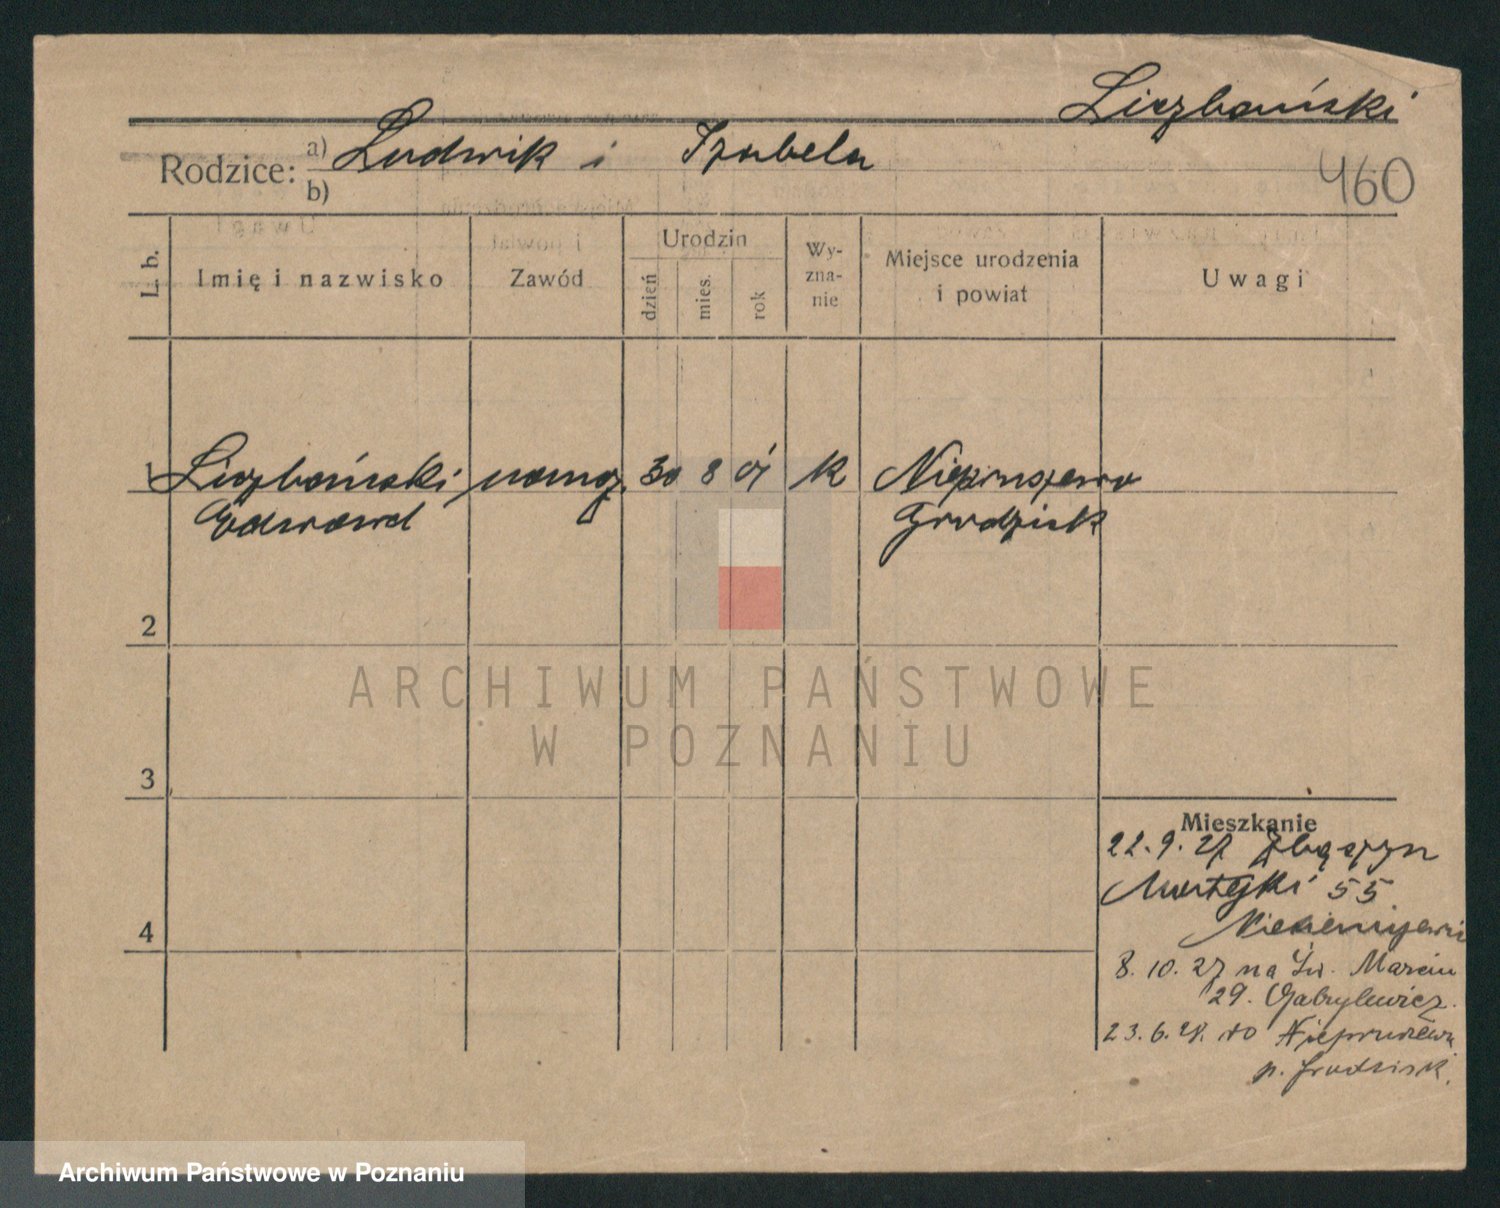 Liczbański
Rodzice: a) Ludwik i Izabela
b)
460
L. b.
Imię i nazwisko
Zawód
Urodzin
dzień
mies.
rok
Wy-
zna-
nie
Miejsce urodzenia
i powiat
Uwagi
1 Liczbański 30 8 01 k Niepruszewo
Edward Grodzisk
2
ARCHIWUM PAŃSTWOWE
W POZNANIU
3
Mieszkanie
22.9.27 Zbąszyn
55
4
8.10.27 na Św. Marcin
29. Gabrylewicz.
23.6.28. do Niepruszewa
p. Grodzisk.
Archiwum Państwowe w Poznaniu